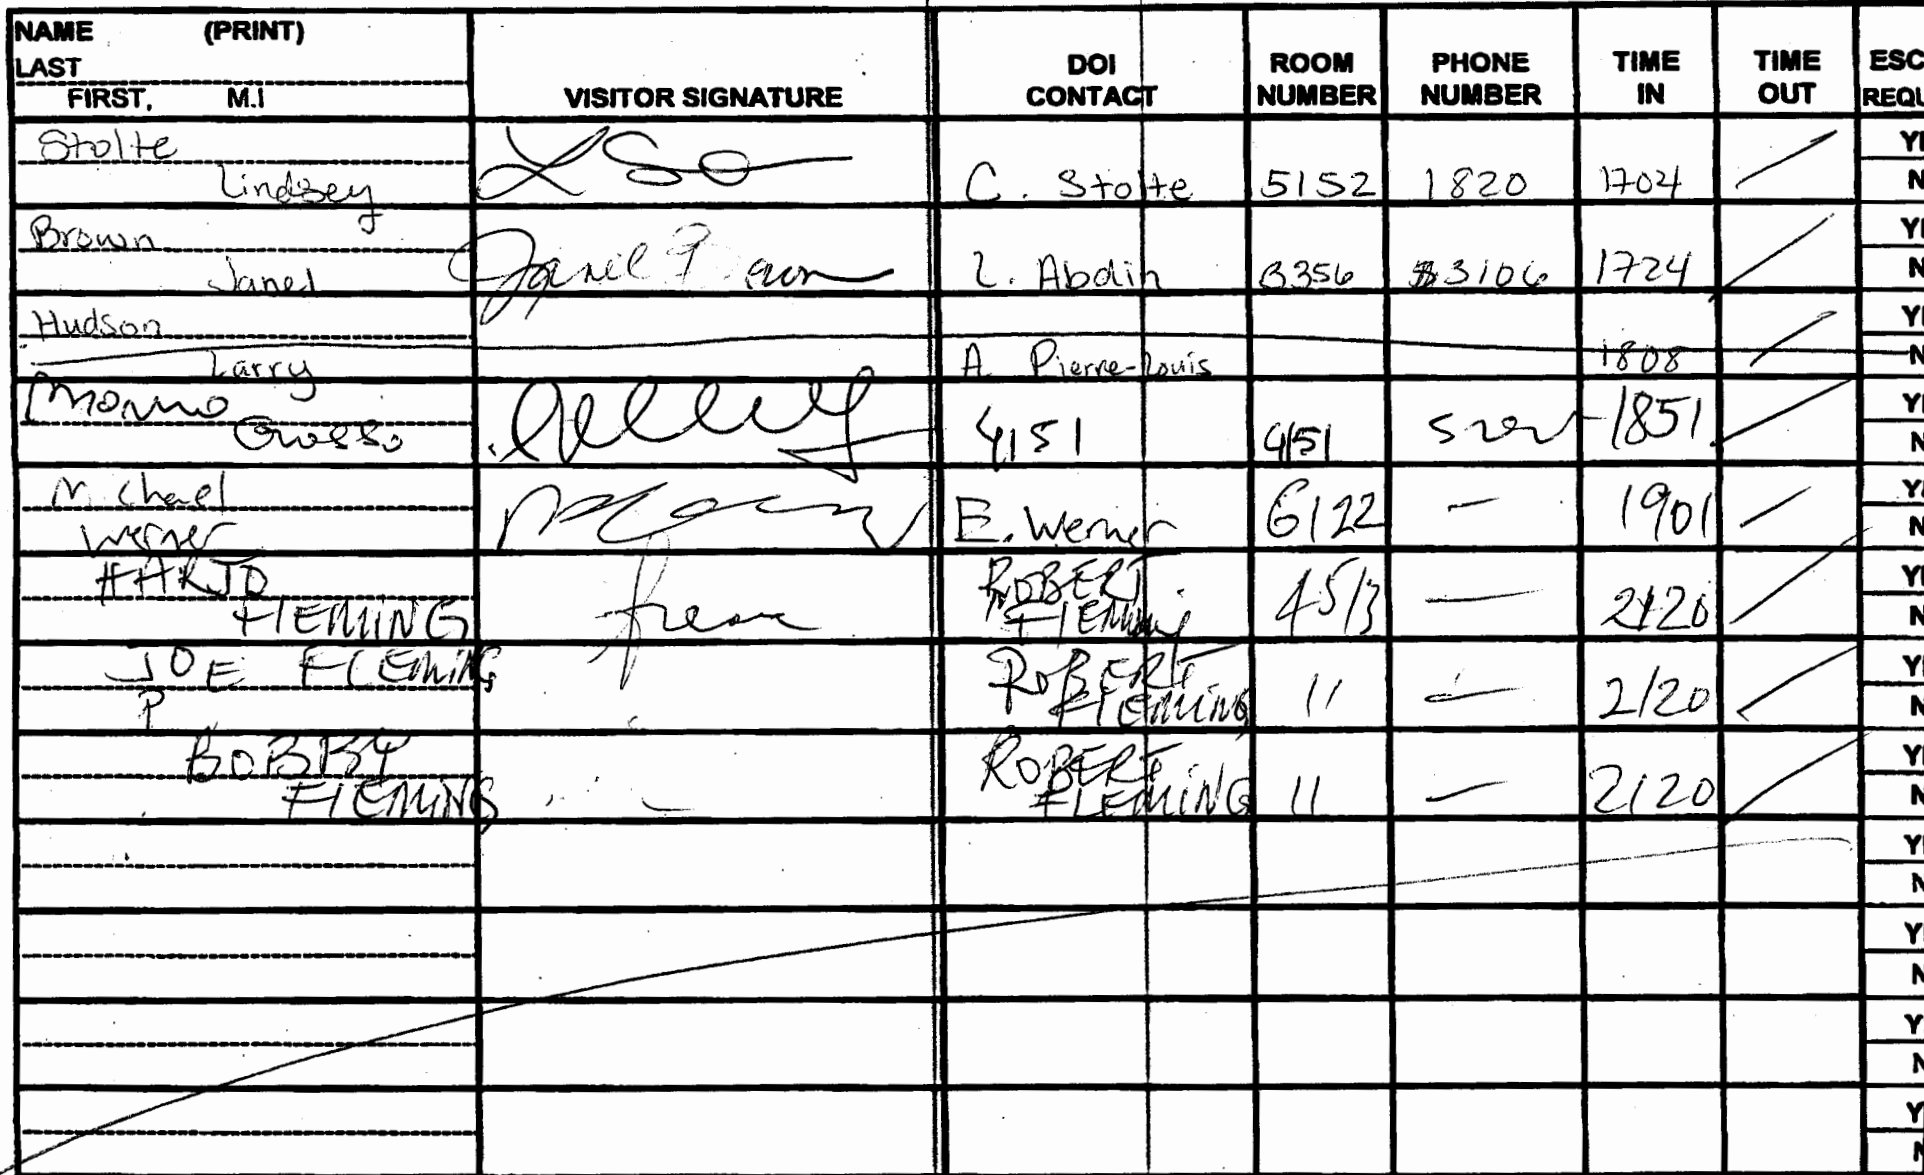 NAME (PRINT)
LAST
FIRST, M.I
VISITOR SIGNATURE
DOI CONTACT
ROOM NUMBER
PHONE NUMBER
TIME IN
TIME OUT
ESC
REQU
Stolte
Lindsey C. Stolte 5152 1820 1704
Brown
Janel Janel Brown L. Abdin 3356 3106 1724
Hudson
Larry A. Pierre-Louis 1808
Grosso 4151 4151 1851
Michael
Werner E. Werner 6122 — 1901
HARJO
FLEMING ROBERT FLEMING 4513 — 2120
JOE FLEMING
P ROBERT FLEMING 11 — 2120
BOBBY
FLEMING ROBERT FLEMING 11 — 2120